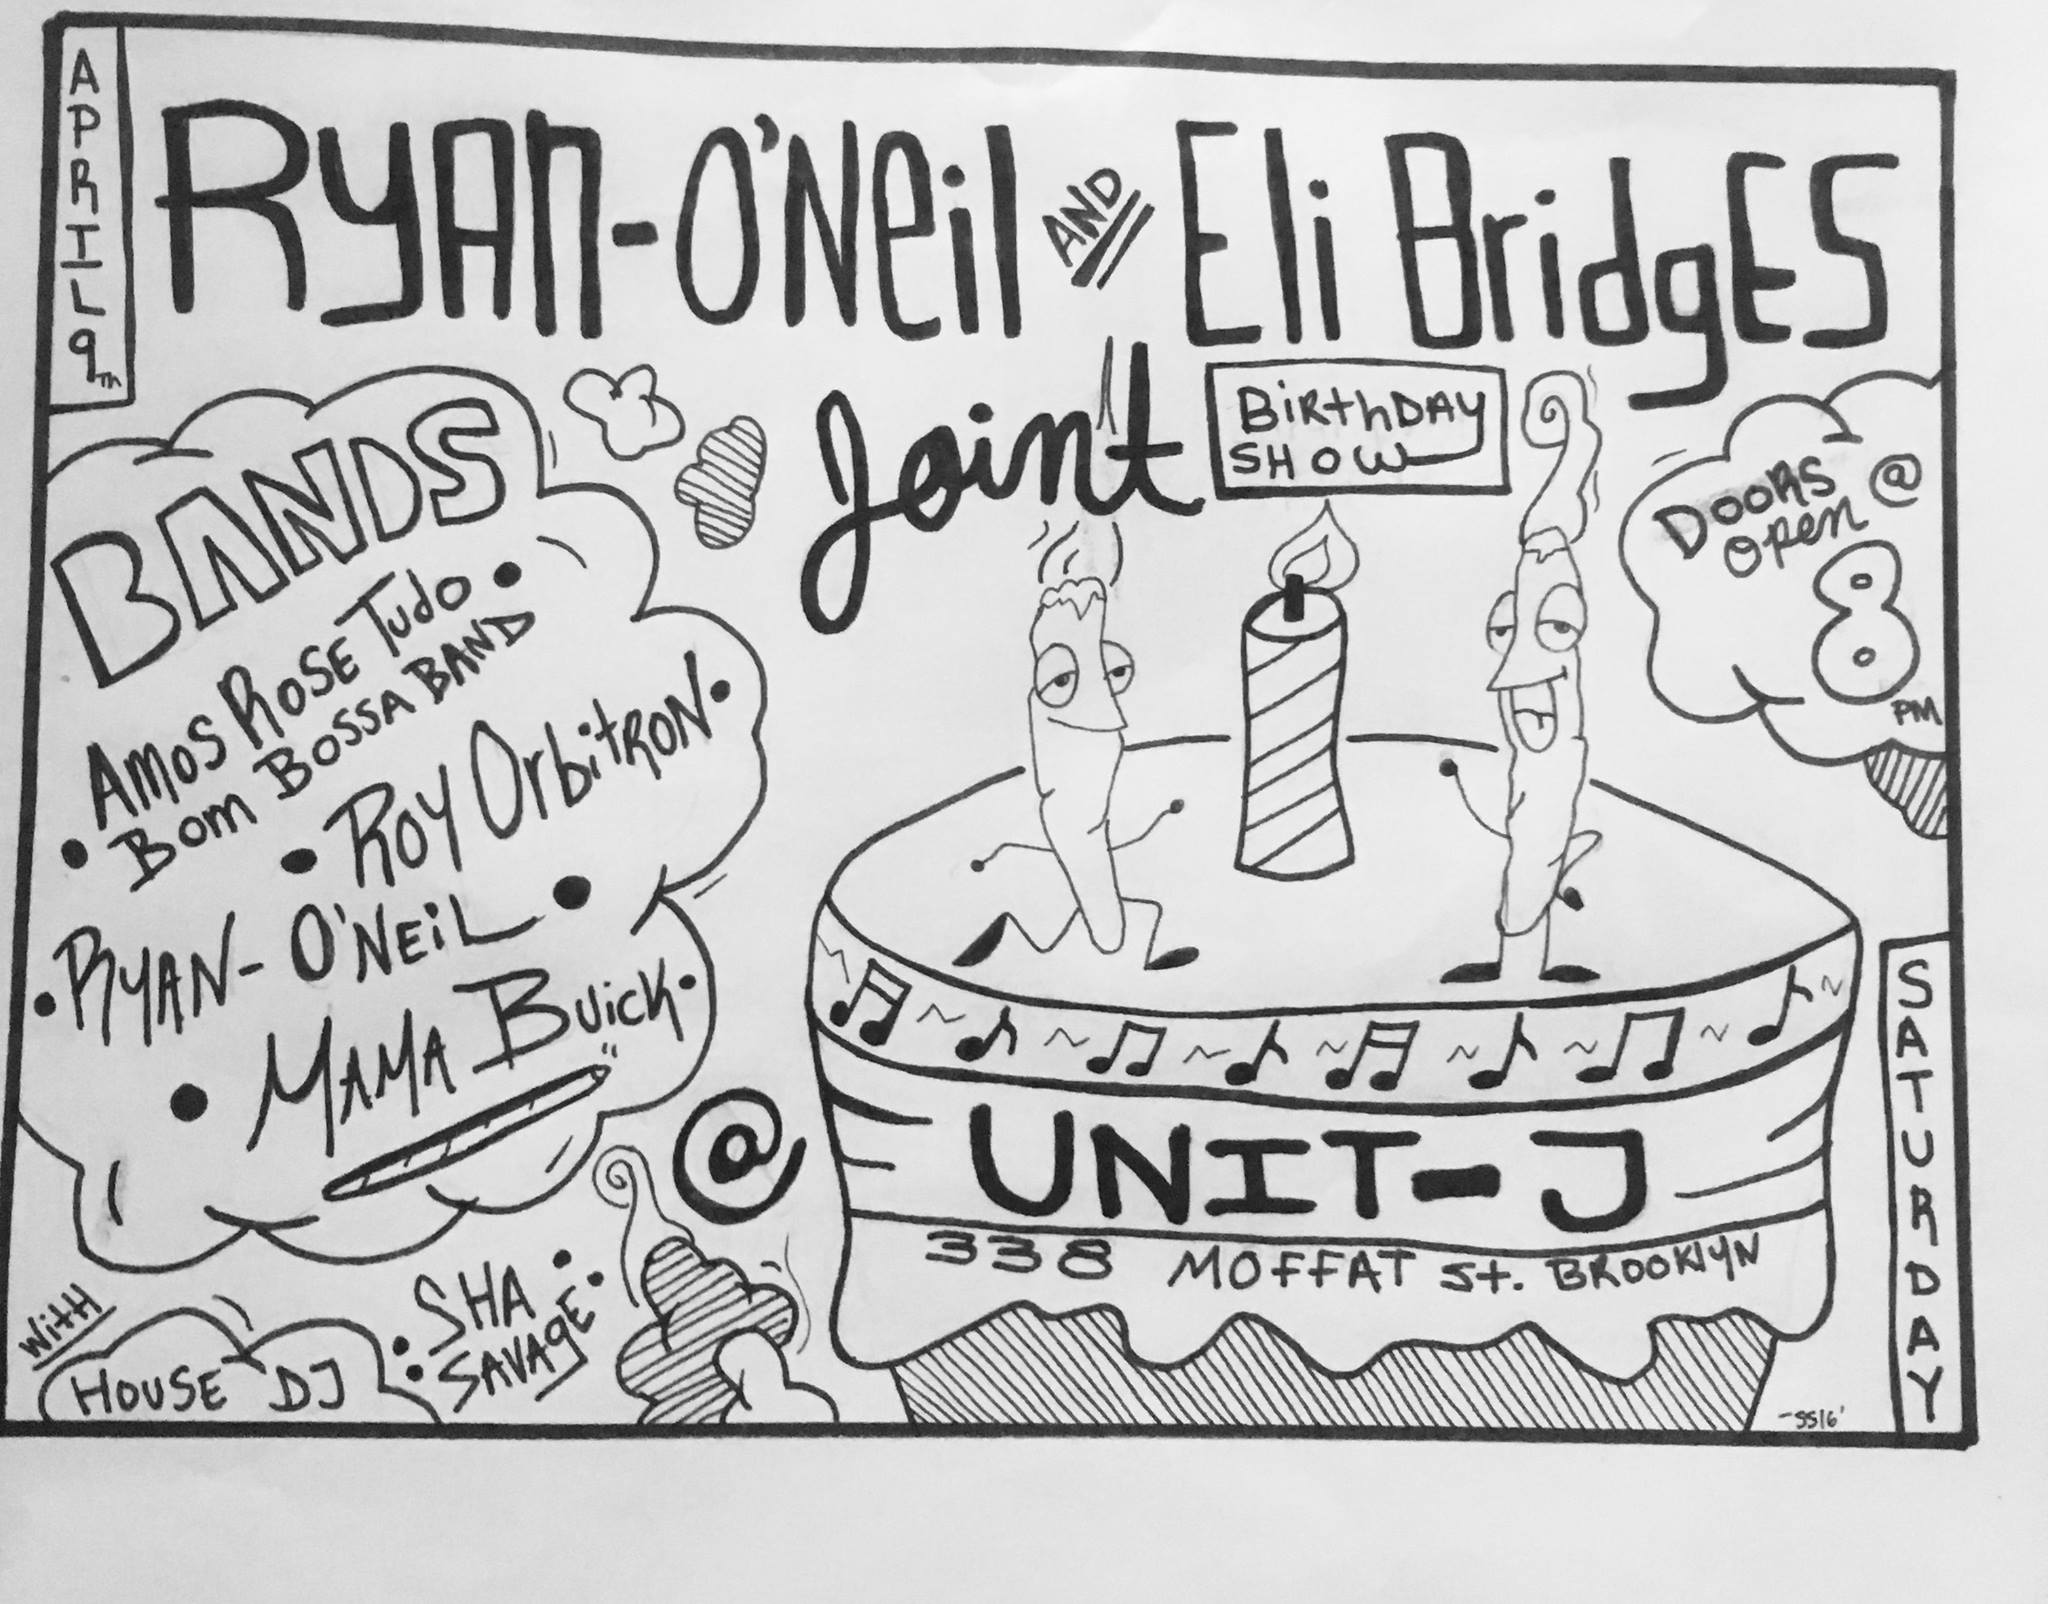 APRIL 9TH
RYAN-O'NEil AND Eli BridgES
Joint
BirthDAY
SHOW
DOORS @
OPEN
8
PM
BANDS
AMOS ROSE TUDO •
• BOM BOSSA BAND
• ROY OrbitRON •
• RYAN-O'NEiL •
• MAMA BUICK •
@
UNIT-J
338 MOFFAT St. BROOKlYN
With
HOUSE DJ
: SHA •
SAVAgE •
SATURDAY
-SS16'